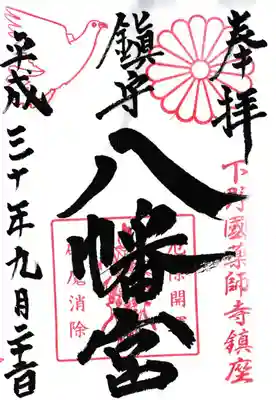 奉拝
下野國薬師寺鎮座
鎮守
八幡宮
厄除開運
病魔消除
平成三十年九月二十二日